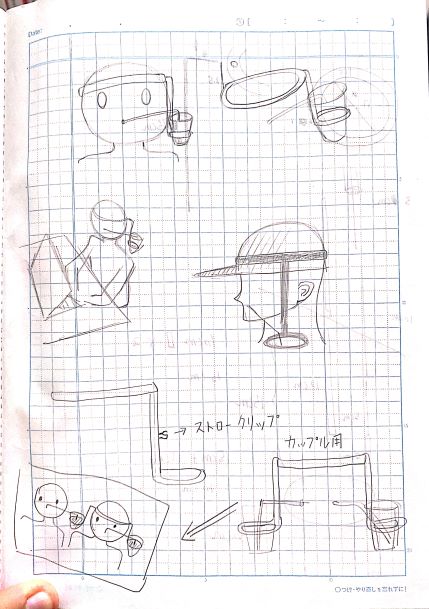 Date:
ストロークリップ
カップル用
○つけ・やり直しを忘れずに!